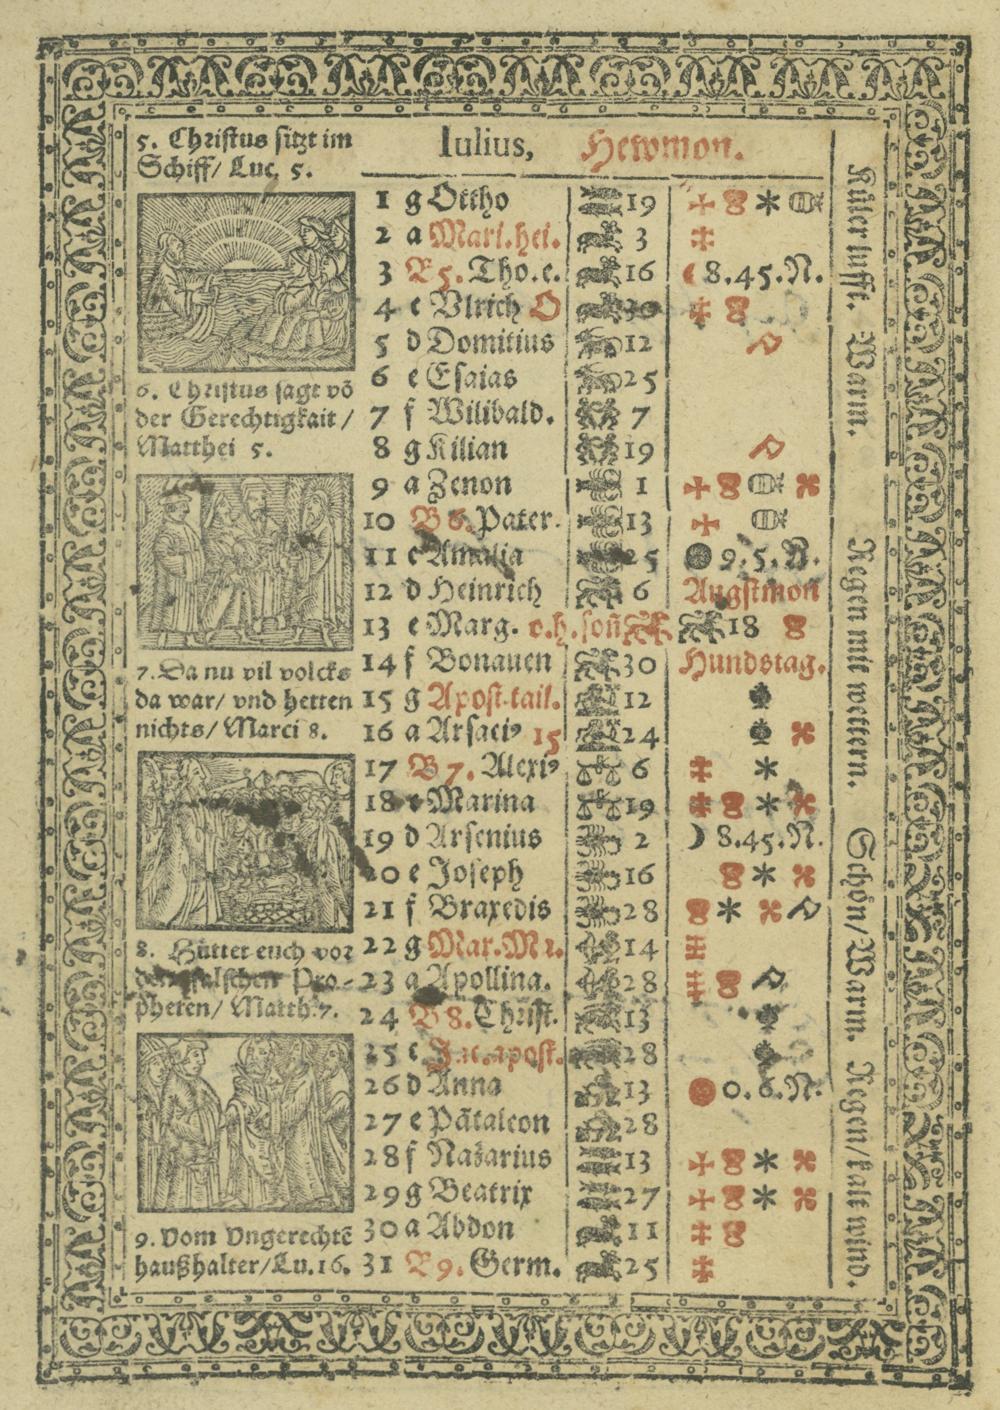 5. Christus sitzt im
Schiff/ Luc. 5.
6. Christus sagt võ
der Gerechtigkait /
Matthei 5.
7. Da nu vil volcks
da war/ vnd hetten
nichts/ Marci 8.
8. Hüttet euch vor
den falschen Pro-
pheten/ Matth. 7.
9. Vom Vngerechtẽ
haußhalter/Lu.16.
Iulius, Hewmon.
1 g Ottho 19
2 a Mari.hei. 3
3 B5. Tho.e. 16 8.45.N.
4 c Vlrich O 30
5 d Domitius 12
6 e Esaias 25
7 f Wilibald. 7
8 g Kilian 19
9 a Zenon 1
10 B 6. Pater. 13
11 c Amalia 25 9.5.N.
12 d Heinrich 6 Augstmon
13 e Marg. 18
14 f Bonauen 30 Hundstag.
15 g Apost.tail. 12
16 a Arsaciꝰ 15 24
17 B 7. Alexiꝰ 6
18 c Marina 19
19 d Arsenius 2 8.45.N.
20 e Joseph 16
21 f Braxedis 28
22 g Mar.Ma. 14
23 a Apollina. 28
24 B 8. Christ. 13
25 c Jac.apost. 28
26 d Anna 13 0.6.N.
27 e Pãtaleon 28
28 f Nazarius 13
29 g Beatrix 27
30 a Abdon 11
31 B9. Germ. 25
Küler lufft. Warm. Regen mit wettern. Schön/Warm. Regen/kalt wind.